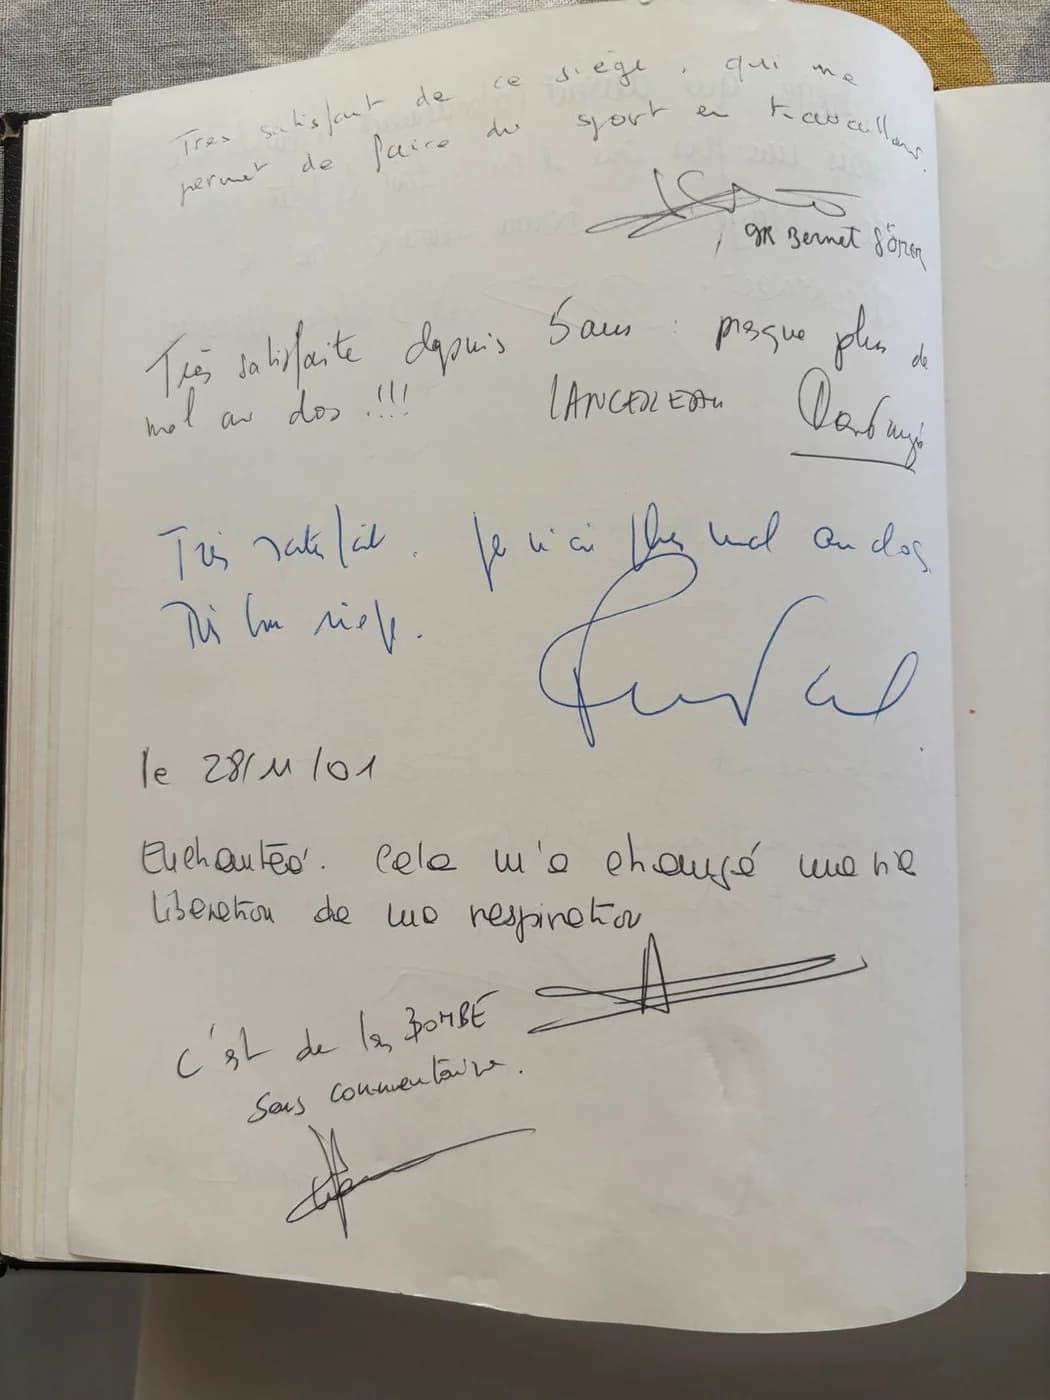 Très satisfait de ce siège, qui me
permet de faire du sport en travaillans.
DR Bernet Sören
Très satisfaite depuis 5 ans : presque plus de
mal au dos !!!
LANCEREAU
Très satisfait. Je n'ai plus mal au dos.
Très bon siège.
le 28/11/01
Enchantée. Cela m'a changé ma vie
libération de ma respiration
C'est de la BOMBE
sans commentaire.